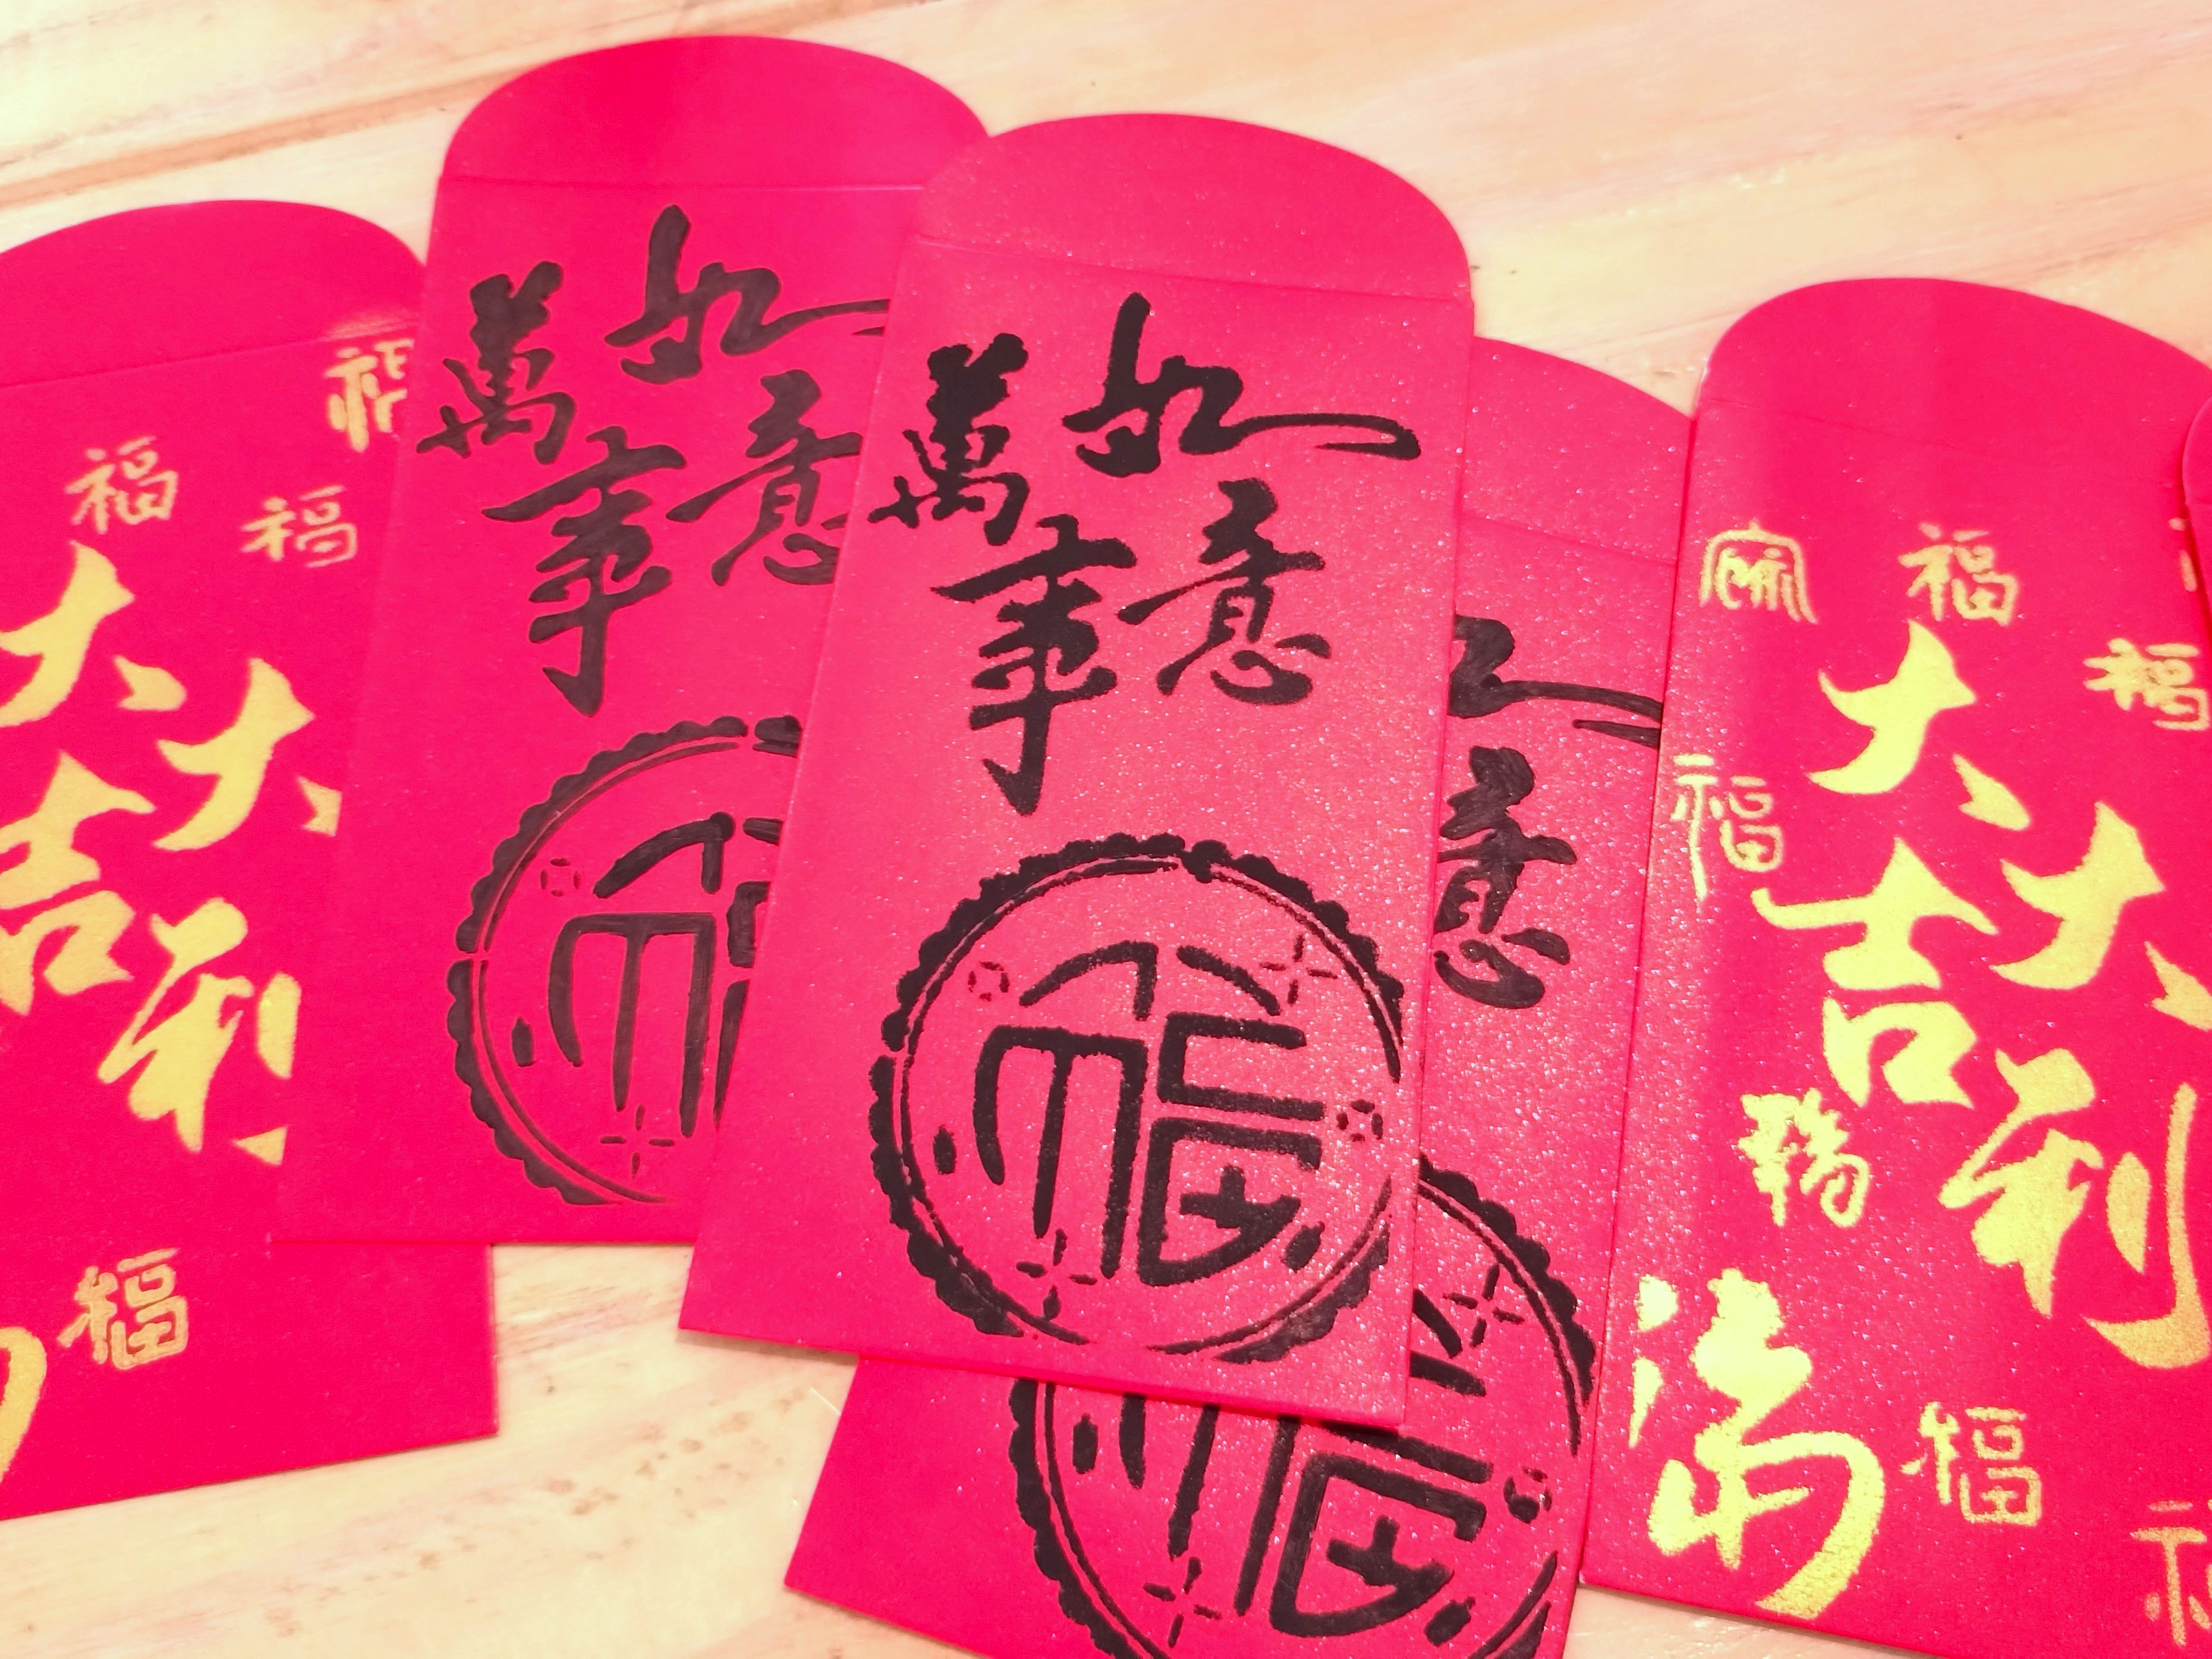 福
福
福
大吉
大利
福
萬事
如意
福
萬事
如意
福
意
福
福
福
福
大吉
大利
福